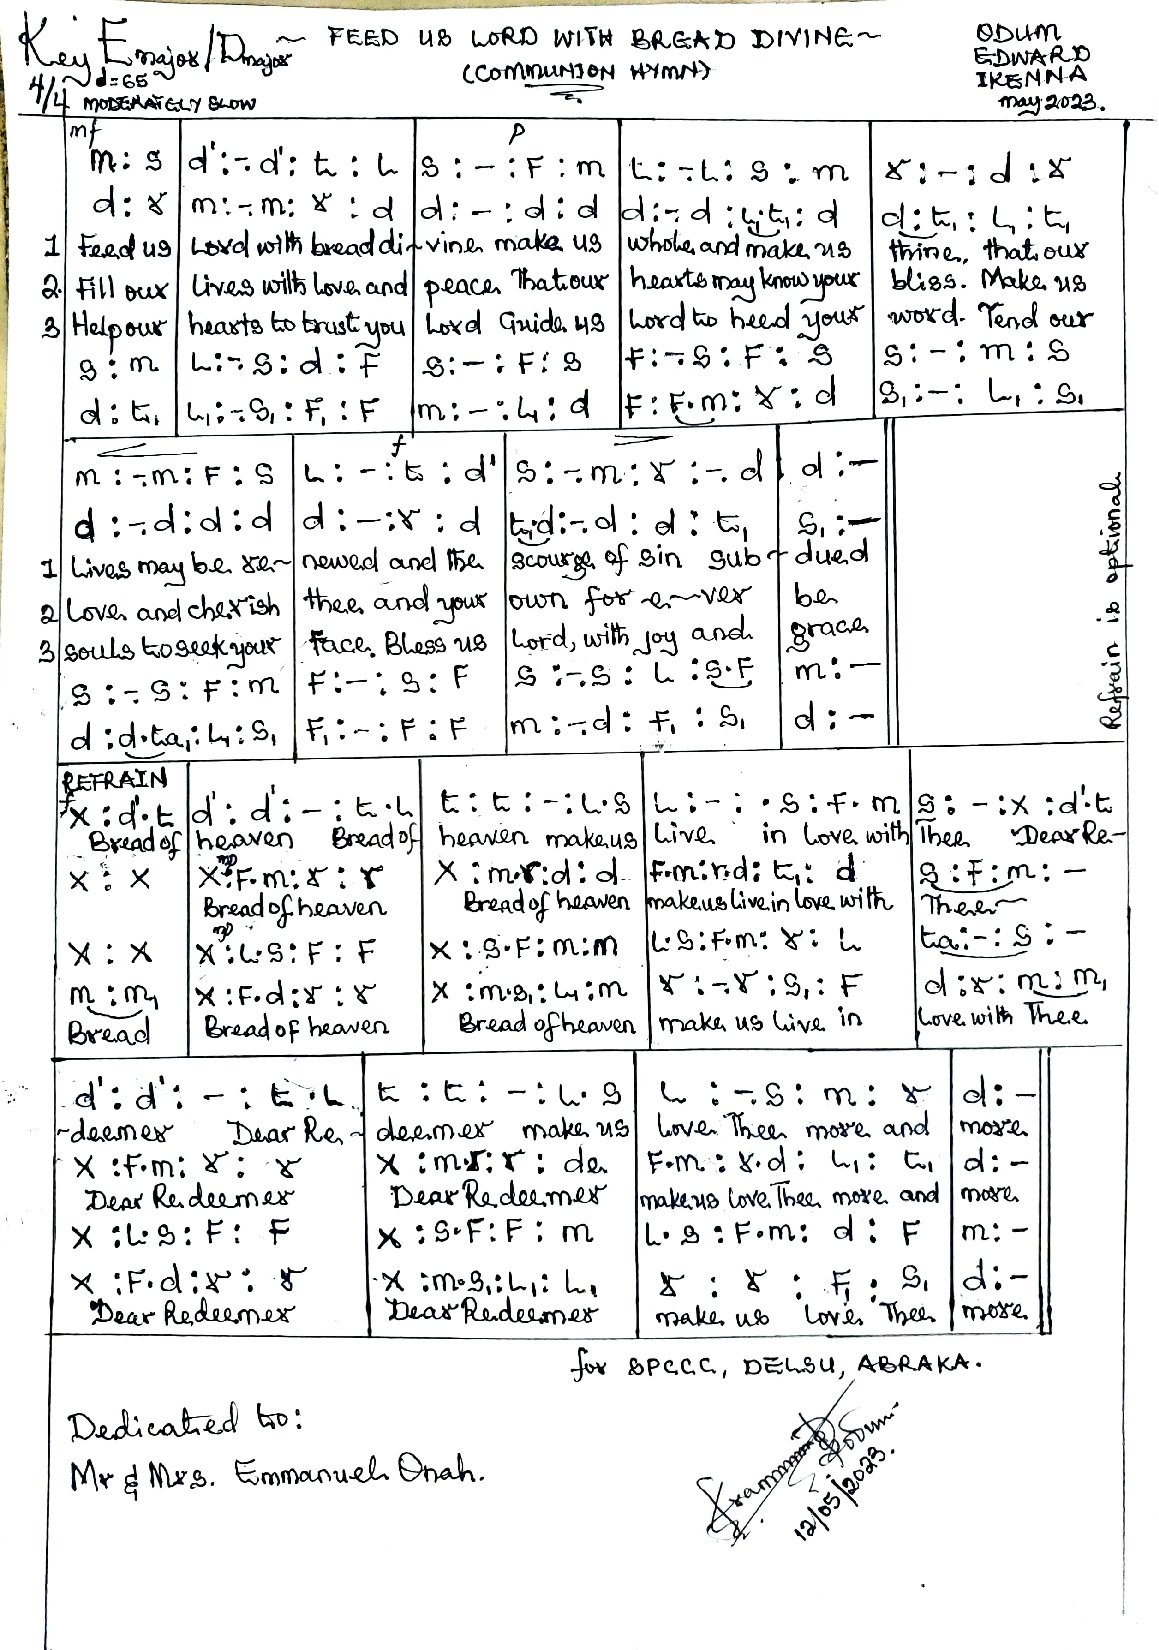 Key E major/D major
~ FEED US LORD WITH BREAD DIVINE ~
ODUM
EDWARD
IKENNA
May 2023.
4/4 d=65
(COMMUNION HYMN)
MODERATELY SLOW
mf p
m : s | d' :-. d' : t : l | s : - : f : m | l :-. l : s : m | r : - : d : r
d : r | m :-. m : r : d | d : - : d : d | d :-. d : l₁. t₁ : d | d : t₁ : l₁ : t₁
1 Feed us | Lord with bread di- | vine make us | whole and make us | thine, that our
2. Fill our | lives with love and | peace That our | hearts may know your | bliss. Make us
3 Help our | hearts to trust you | Lord Guide us | Lord to heed your | word. Tend our
s : m | l :-. s : d : f | s : - : f : s | f :-. s : f : s | s : - : m : s
d : t₁ | l₁ :-. s₁ : f₁ : f | m : - : l₁ : d | f : f.m : r : d | s₁ : - : l₁ : s₁
f
m :-. m : f : s | l : - : t : d' | s :-. m : r :-. d | d : -
d :-. d : d : d | d : - : r : d | t₁. d :-. d : d : t₁ | s₁ : -
1 Lives may be re- | newed and the | scourge of sin sub- | dued
2 Love and cherish | thee and your | own for e-ver | be
3 souls to seek your | face. Bless us | Lord, with joy and | grace
s :-. s : f : m | f : - : s : f | s :-. s : l : s.f | m : -
d : d.ta₁ : l₁ : s₁ | f₁ : - : f : f | m :-. d : f₁ : s₁ | d : -
Refrain is optional
REFRAIN
f
x : d'.t | d' : d' : - : t.l | t : t : - : l.s | l : - : .s : f.m | s : - : x : d'.t
Bread of | heaven Bread of | heaven make us | live in love with | Thee Dear Re-
mp
x : x | x : f.m : r : r | x : m.r : d : d | f.m : r.d : t₁ : d | s : f : m : -
Bread of heaven | Bread of heaven | make us live in love with | Thee
mp
x : x | x : l.s : f : f | x : s.f : m : m | l.s : f.m : r : l | ta : - : s : -
m : m₁ | x : f.d : r : r | x : m.s₁ : l₁ : m | r :-. r : s₁ : f | d : r : m : m₁
Bread | Bread of heaven | Bread of heaven | make us live in | love with Thee
d' : d' : - : t.l | t : t : - : l.s | l :-. s : m : r | d : -
-deemer Dear Re- | deemer make us | love Thee more and | more
x : f.m : r : r | x : m.r : r : de | f.m : r.d : l₁ : t₁ | d : -
Dear Redeemer | Dear Redeemer | make us love Thee more and | more
x : l.s : f : f | x : s.f : f : m | l.s : f.m : d : f | m : -
x : f.d : r : r | x : m.s₁ : l₁ : l₁ | r : r : f₁ : s₁ | d : -
Dear Redeemer | Dear Redeemer | make us love Thee | more
for SPCCC, DELSU, ABRAKA.
Dedicated to:
Mr & Mrs. Emmanuel Onah.
12/05/2023.